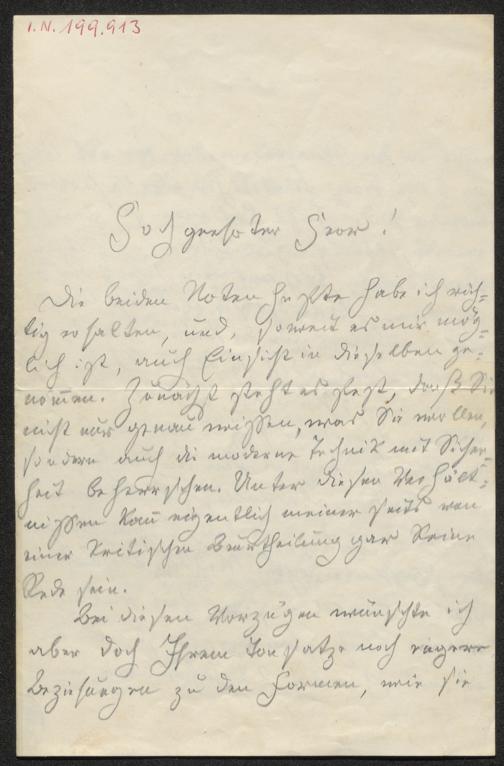 I.N. 199.913
Hochgeehrter Herr!
Die beiden Notenhefte habe ich rich-
tig erhalten, und, soweit es mir mög-
lich ist, auch Einsicht in dieselben ge-
nom̅en. Zunächst steht es fest, daß Sie
nicht nur genau wissen, was Sie wollen,
sondern auch die moderne Technik mit Sicher-
heit beherrschen. Unter diesen Verhält-
nissen kan̅ eigentlich meiner seits von
einer kritischen Beurtheilung gar keine
Rede sein.
Bei diesen Vorzügen wünschte ich
aber doch Ihrem Tonsatze noch engere
Beziehungen zu den Formen, wie sie